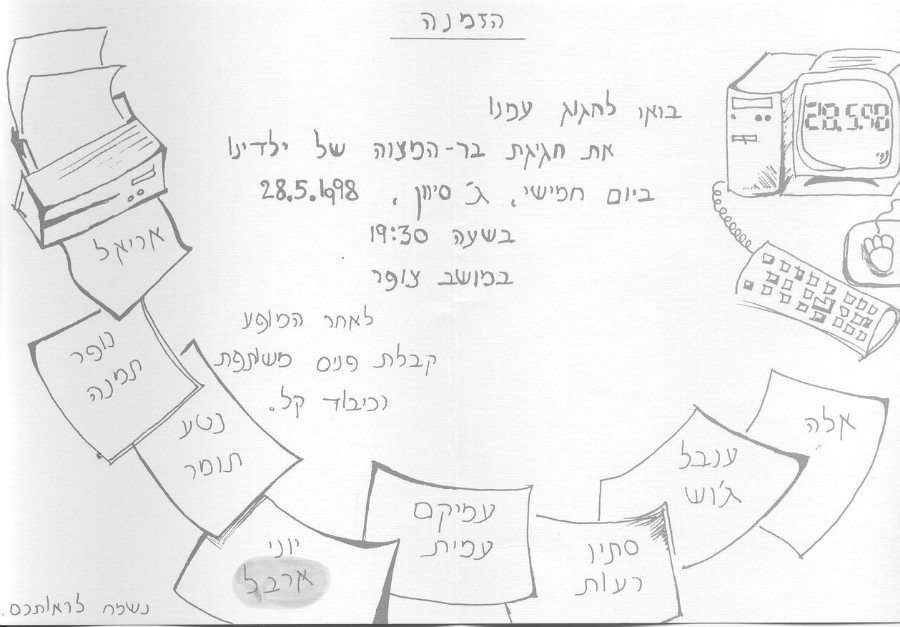 הזמנה
בואו לחגוג עמנו
את חגיגת בר-המצוה של ילדינו
ביום חמישי, ג' סיוון, 28.5.1998
בשעה 19:30
במושב צופר
לאחר המופע
קבלת פנים משותפת
וכיבוד קל.
28.5.98
אריאל
נופר
תמנה
נטע
תומר
יוני
ארבל
עמיקם
עמית
סתיו
רעות
ענבל
ג'וש
אלה
נשמח לראותכם.